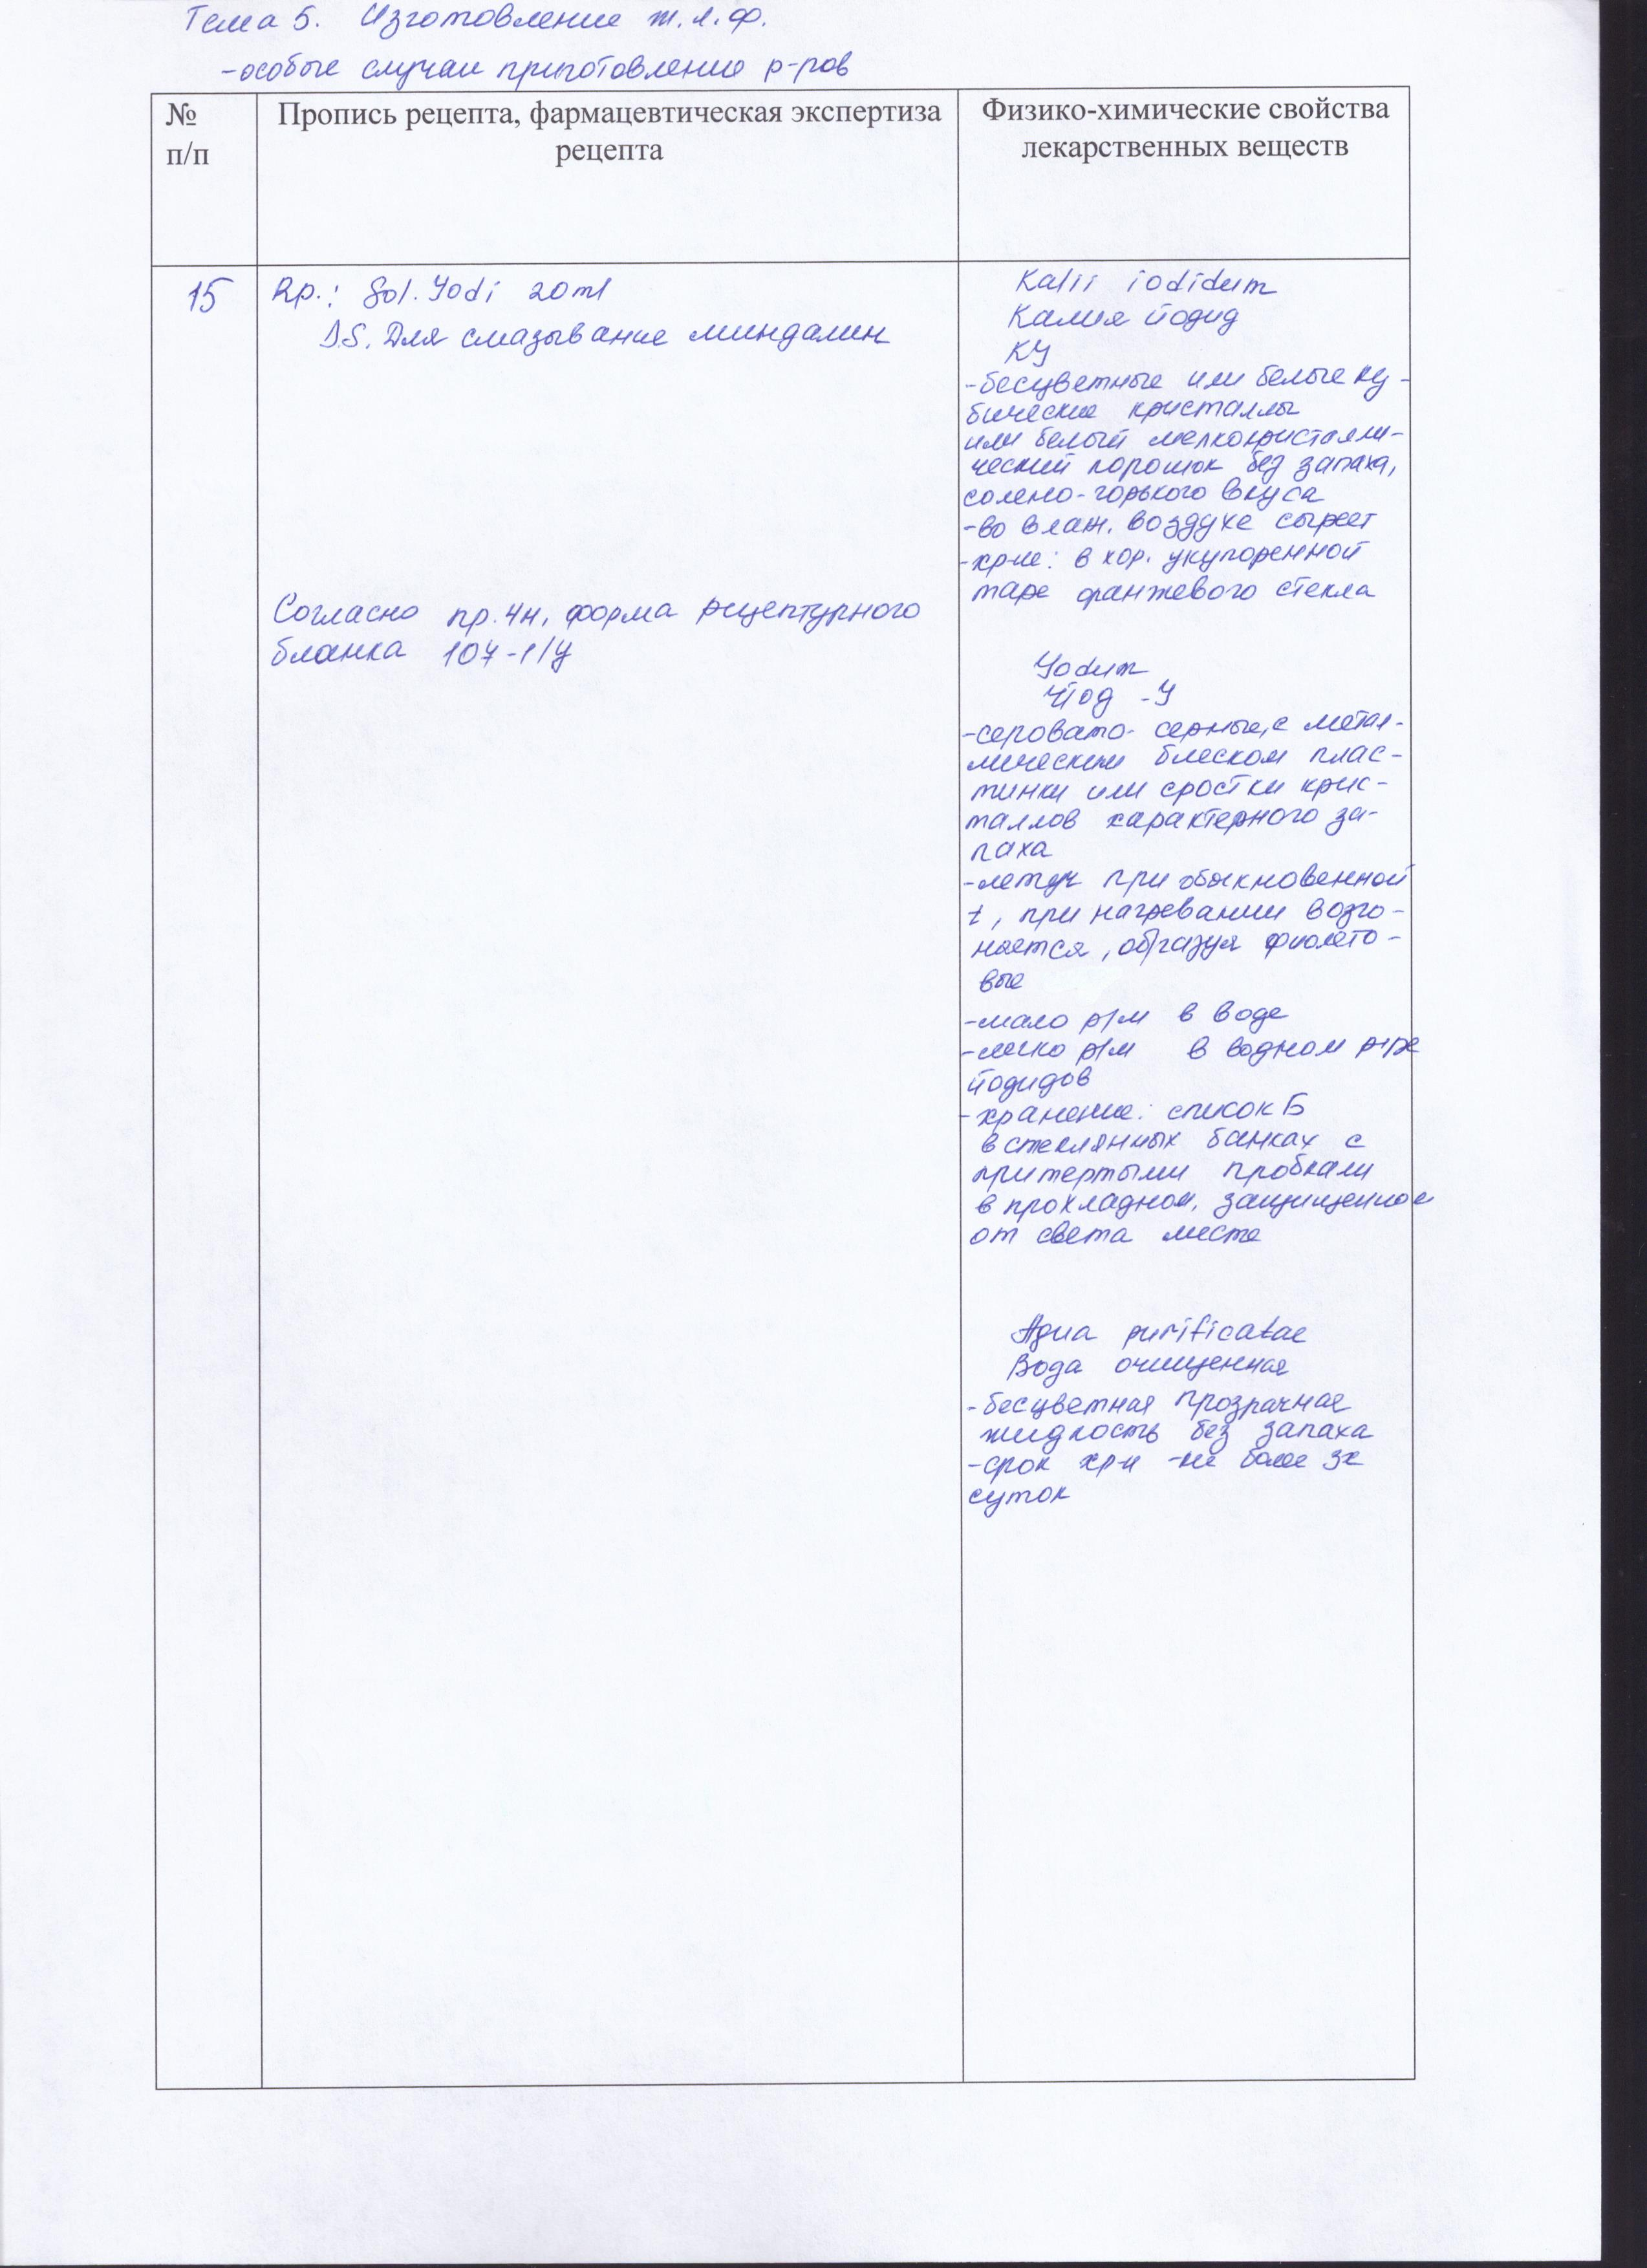 Тема 5. Изготовление ж.л.ф.
-особые случаи приготовление р-ров
№
п/п
Пропись рецепта, фармацевтическая экспертиза
рецепта
Физико-химические свойства
лекарственных веществ
15
Rp.: Sol. Yodi 20 ml
D.S. Для смазывание миндалин
Согласно пр. 4н, форма рецептурного
бланка 107-1/у
Kalii iodidum
Калия йодид
КУ
-бесцветные или белые ку-
бические кристаллы
или белый мелкокристалли-
ческий порошок без запаха,
солено-горького вкуса
-во влаж. воздухе сыреет
-хр-ие: в хор. укупоренной
таре оранжевого стекла
Yodum
Йод -У
-серовато-серные, с метал-
лическим блеском плас-
тинки или сростки крис-
таллов характерного за-
паха
-летуч при обыкновенной
t, при нагревании возго-
няется, образуя фиолето-
вые
-мало р/м в воде
-легко р/м в водном р-ре
йодидов
-хранение: список Б
в стеклянных банках с
притертыми пробками
в прохладном, защищенное
от света месте
Aqua purificatae
Вода очищенная
-бесцветная прозрачная
жидкость без запаха
-срок хр-я -не более 3х
суток